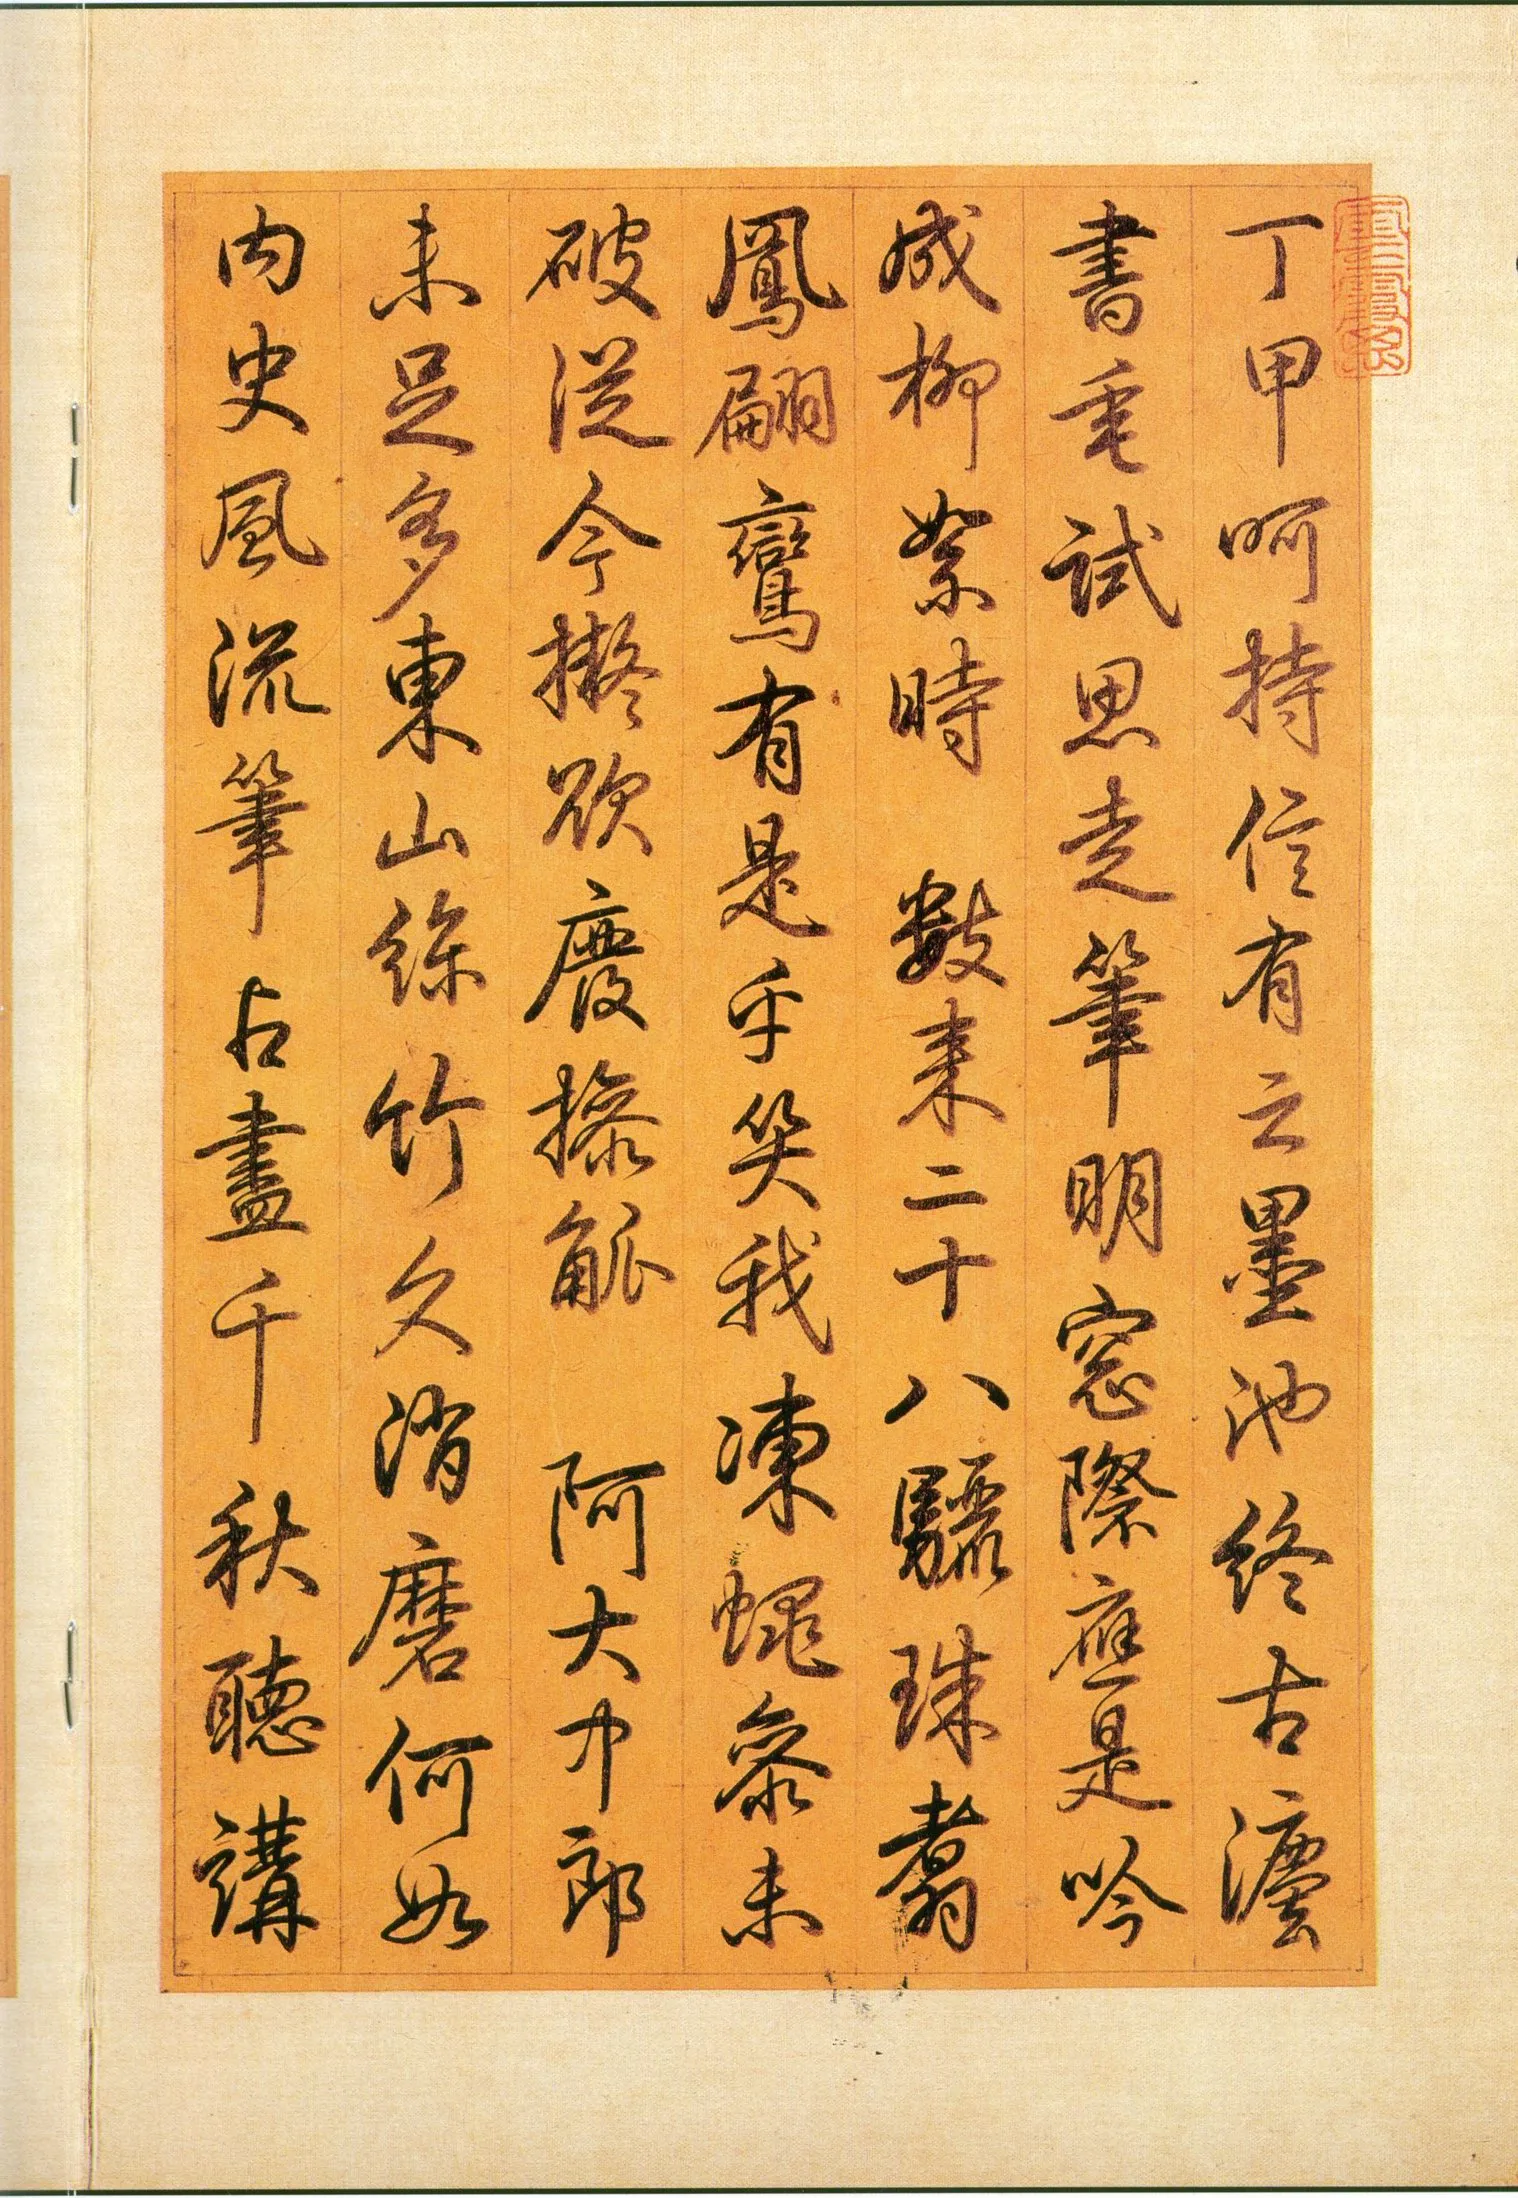 丁甲呵持信有云墨池終古瀍
書毫試思走筆明窓際應是吟
成柳絮時　數來二十八驪珠翥
鳳翩鸞有是乎笑我凍蠅窗未
破從今擬欲廢操觚　阿大中郎
未足多東山絲竹久消磨何如
內史風流筆占盡千秋聽講